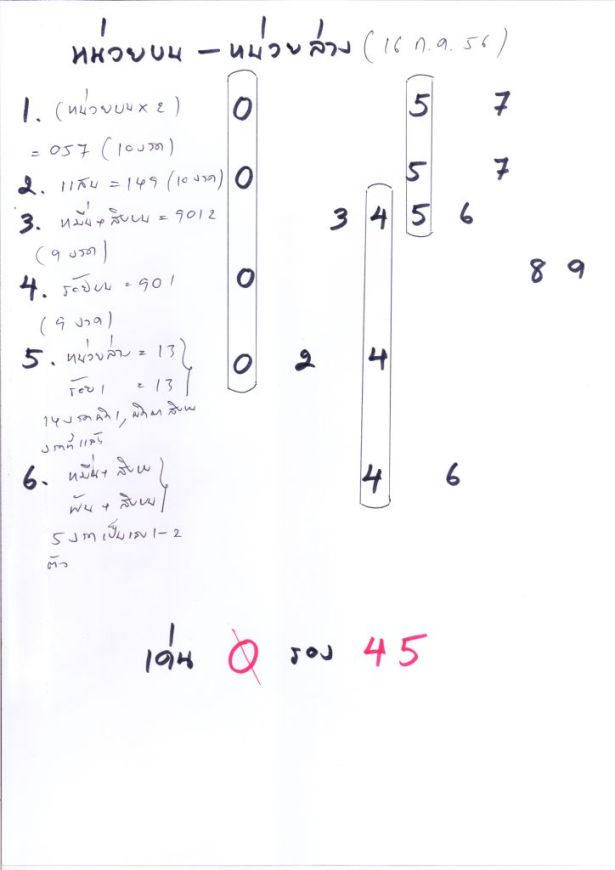 หน่วยบน – หน่วยล่าง (16 ก.ค. 56)
1. (หน่วยบน x 2) 0 5 7
= 057 (10 งวด)
2. แสน = 149 (10 งวด) 0 5 7
3. หมื่น + สิบบน = 9012 3 4 5 6
(9 งวด)
8 9
4. ร้อยบน = 901 0
(9 งวด)
5. หน่วยล่าง = 13 0 2 4
ร้อย 1 = 13
14 งวด
งวดที่แล้ว
6. หมื่น + สิบบน 4 6
พัน + สิบบน
5 งวด เป็นเลข 1-2
ตัว
เด่น 0 รอง 45